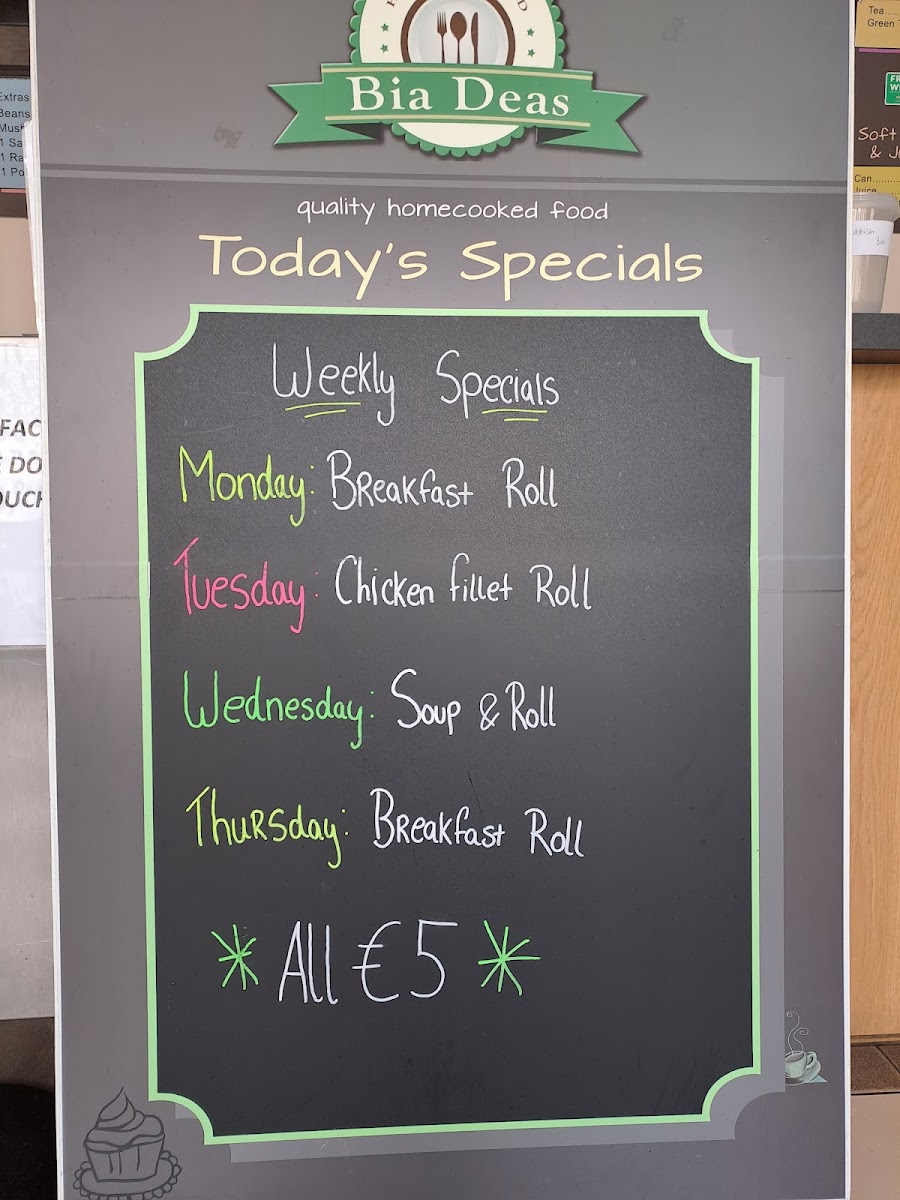 Bia Deas
quality homecooked food
Today's Specials
Weekly Specials
Monday: Breakfast Roll
Tuesday: Chicken fillet Roll
Wednesday: Soup & Roll
Thursday: Breakfast Roll
All €5
Extras
Beans
Tea.....
Green
Soft
&
Can.........
Juice